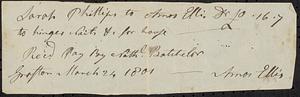 Sarah Phillips to Amos Ellis Dr £0-16-7
to hinges Nails & for house
Rec'd Pay By Nathl Batcheler
Grafton March 24 1801 Amos Ellis